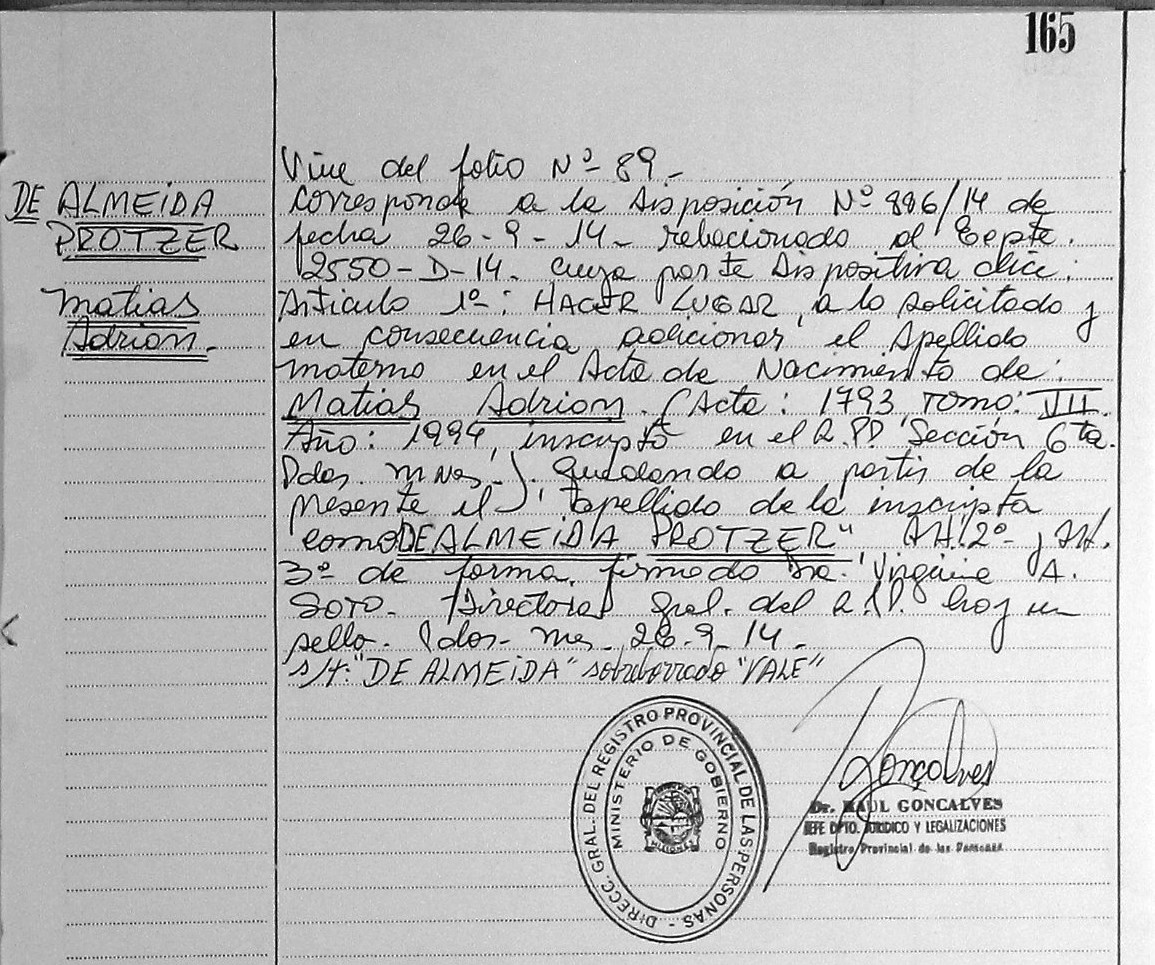 165
DE ALMEIDA
PROTZER
Matias
Adrian.-
Viene del folio Nº 89.-
Corresponde a la Disposición Nº 896/14 de
fecha 26-9-14.- relacionado al Expte.
2550-D-14. cuya parte Dispositiva dice:
Articulo 1º: HACER LUGAR, a lo solicitado y
en consecuencia adicionar el Apellido
materno en el Acta de Nacimiento de:
Matias Adrian. (Acta: 1793 Tomo: VII.
Año: 1994, inscripto en el R.P.P. Sección 6ta.
Pdas. Mnes.-). Quedando a partir de la
presente el apellido de la inscripta
como "DE ALMEIDA PROTZER" Art. 2º y Art.
3º de forma. firmado Dra. A.
Soto. Directora Gral. del R.P.P. hay un
sello. Pdas. Mnes. 26-9-14.-
s/t: "DE ALMEIDA" sobreborrado "VALE"
DIRECC. GRAL. DEL REGISTRO PROVINCIAL DE LAS PERSONAS
MINISTERIO DE GOBIERNO
MISIONES
Gonçalves
Dr. RAUL GONCALVES
JEFE DPTO. JURIDICO Y LEGALIZACIONES
Registro Provincial de las Personas